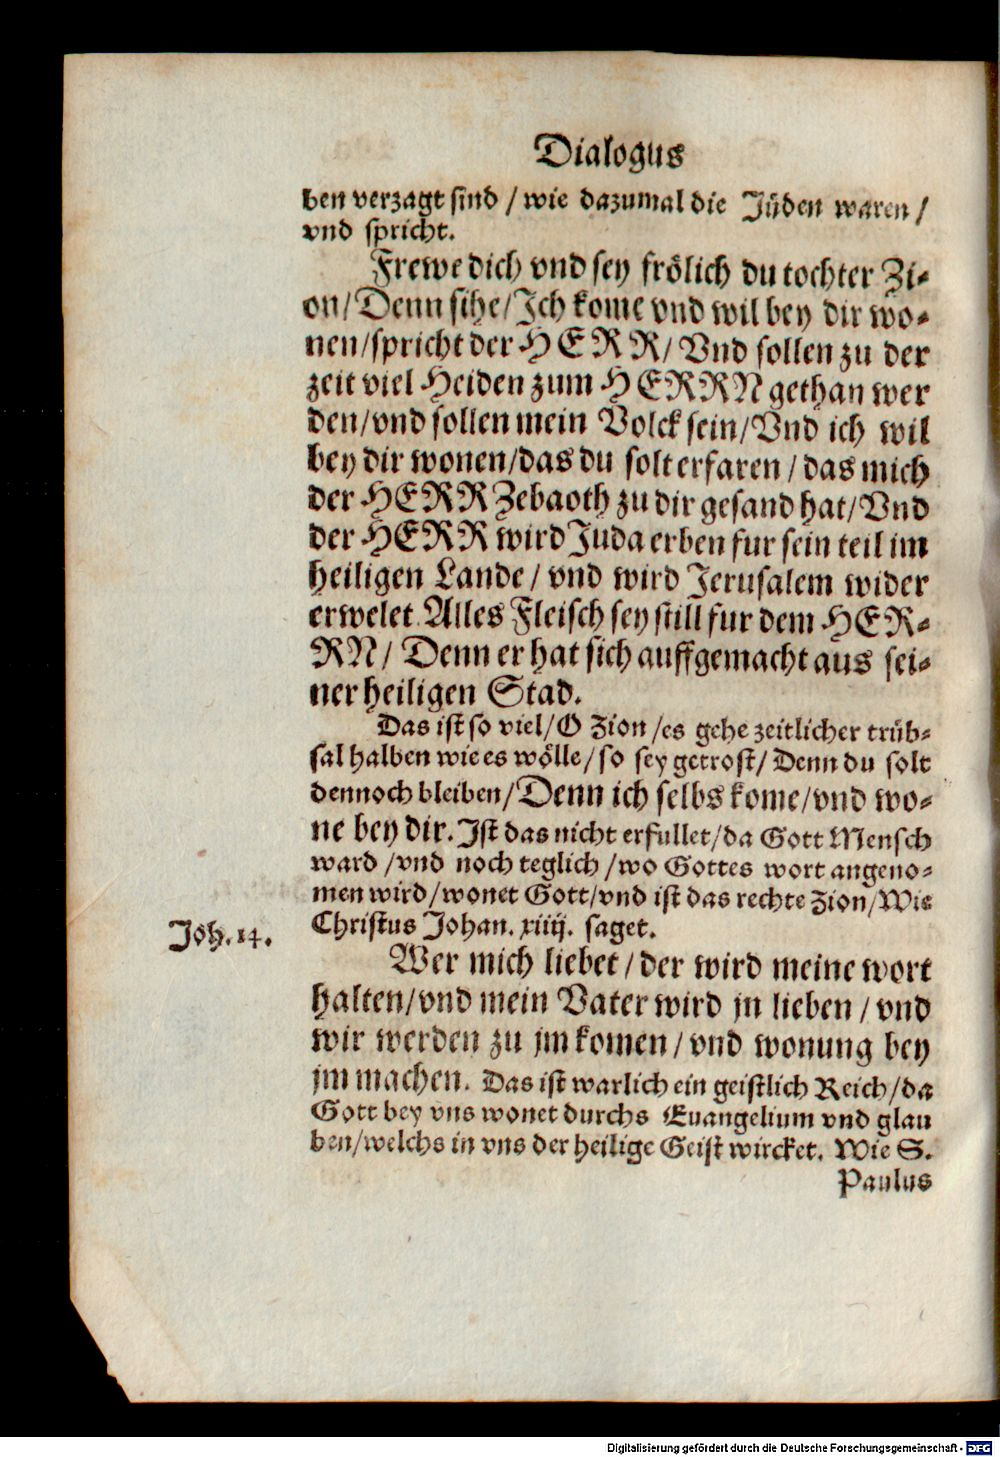 Dialogus
ben verzagt sind / wie dazumal die Jüden waren /
vnd spricht.
Frewe dich vnd sey frölich du tochter Zi-
on / Denn sihe / Ich kome vnd wil bey dir wo-
nen / spricht der HERR / Vnd sollen zu der
zeit viel Heiden zum HERRN gethan wer
den / vnd sollen mein Volck sein / Vnd ich wil
bey dir wonen / das du solt erfaren / das mich
der HERR Zebaoth zu dir gesand hat / Vnd
der HERR wird Juda erben fur sein teil im
heiligen Lande / vnd wird Jerusalem wider
erwelet. Alles Fleisch sey still fur dem HER-
RN / Denn er hat sich auffgemacht aus sei-
ner heiligen Stad.
Das ist so viel / O Zion / es gehe zeitlicher trüb-
sal halben wie es wölle / so sey getrost / Denn du solt
dennoch bleiben / Denn ich selbs kome / vnd wo-
ne bey dir. Ist das nicht erfullet / da Gott Mensch
ward / vnd noch teglich / wo Gottes wort angeno-
men wird / wonet Gott / vnd ist das rechte Zion / Wie
Christus Johan. xiiij. saget.
Joh. 14.
Wer mich liebet / der wird meine wort
halten / vnd mein Vater wird jn lieben / vnd
wir werden zu jm komen / vnd wonung bey
jm machen. Das ist warlich ein geistlich Reich / da
Gott bey vns wonet durchs Euangelium vnd glau
ben / welchs in vns der heilige Geist wircket. Wie S.
Paulus
Digitalisierung gefördert durch die Deutsche Forschungsgemeinschaft - DFG